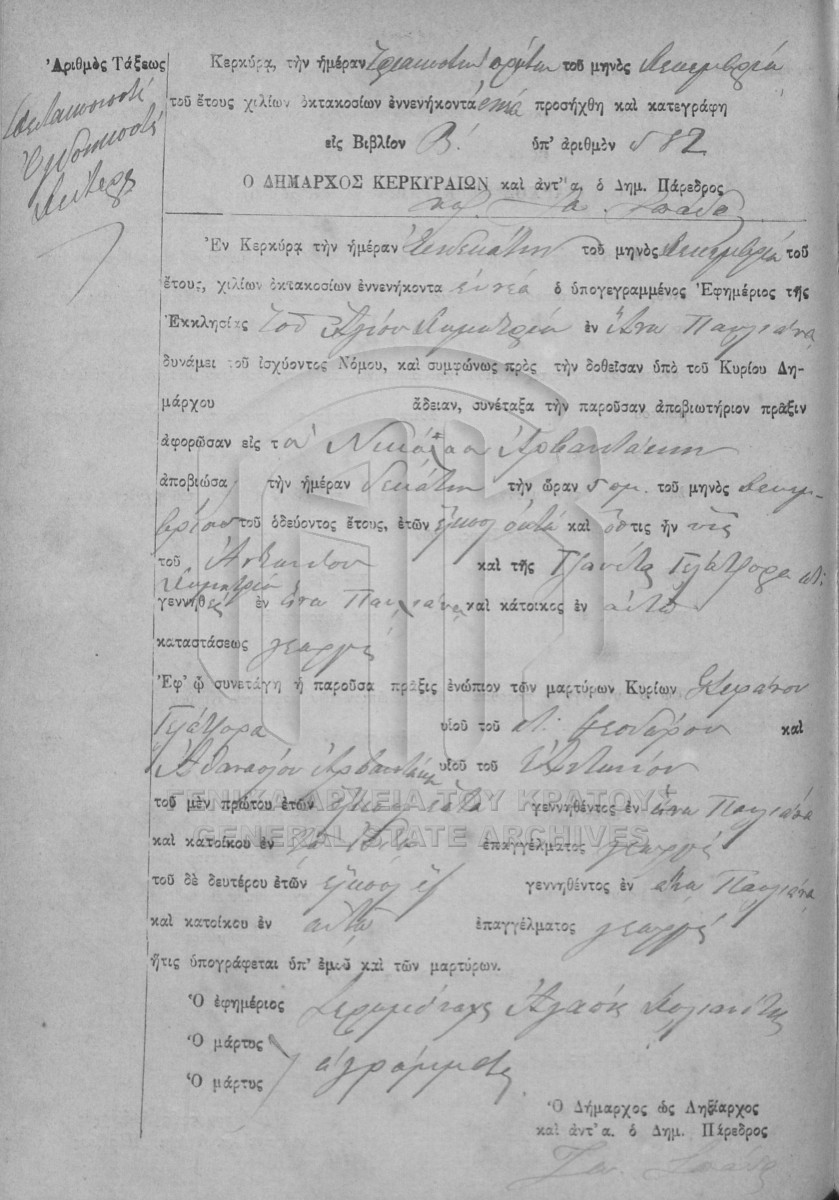 Ἀριθμὸς Τάξεως
Πεντακοσιοστὴ
Ὀγδοηκοστὴ
Δευτέρα
Κερκύρᾳ, τὴν ἡμέραν Τριακοστὴν πρώτην τοῦ μηνὸς Δεκεμβρίου
τοῦ ἔτους χιλίων ὀκτακοσίων ἐννενήκοντα ἐννέα προσήχθη καὶ κατεγράφη
εἰς Βιβλίον Β! ὑπ' ἀριθμὸν 582
Ο ΔΗΜΑΡΧΟΣ ΚΕΡΚΥΡΑΙΩΝ καὶ ἀντ' α. ὁ Δημ. Πάρεδρος
Ἐν Κερκύρᾳ τὴν ἡμέραν Ἑνδεκάτην τοῦ μηνὸς Δεκεμβρίου τοῦ
ἔτους, χιλίων ὀκτακοσίων ἐννενήκοντα ἐννέα ὁ ὑπογεγραμμένος Ἐφημέριος τῆς
Ἐκκλησίας τοῦ Ἁγίου Δημητρίου ἐν Ἄνω Παυλιάνα
δυνάμει τοῦ ἰσχύοντος Νόμου, καὶ συμφώνως πρὸς τὴν δοθεῖσαν ὑπὸ τοῦ Κυρίου Δη-
μάρχου ἄδειαν, συνέταξα τὴν παροῦσαν ἀποβιωτήριον πρᾶξιν
ἀφορῶσαν εἰς τὸν Νικόλαον Ἀρβανιτάκην
ἀποβιώσα τὴν ἡμέραν δεκάτην τὴν ὥραν 5 πμ. τοῦ μηνὸς Δεκεμ-
βρίου τοῦ ὁδεύοντος ἔτους, ἐτῶν εἴκοσι ὀκτὼ καὶ ὅστις ἦν υἱὸς
τοῦ Ἀντωνίου καὶ τῆς Τζανέτας Γιάτζορα
Δημητρίου
γεννηθεὶς ἐν Ἄνω Παυλιάνα καὶ κάτοικος ἐν αὐτῷ
καταστάσεως γεωργὸς
Ἐφ' ᾧ συνετάγη ἡ παροῦσα πρᾶξις ἐνώπιον τῶν μαρτύρων Κυρίων Στεφάνου
Γιάτζορα υἱοῦ τοῦ Θεοδώρου καὶ
Ἀθανασίου Ἀρβανιτάκη υἱοῦ τοῦ Ἀντωνίου
τοῦ μὲν πρώτου ἐτῶν γεννηθέντος ἐν Ἄνω Παυλιάνα
καὶ κατοίκου ἐν ἐπαγγέλματος γεωργὸς
τοῦ δὲ δευτέρου ἐτῶν εἴκοσι ἓξ γεννηθέντος ἐν Ἄνω Παυλιάνα
καὶ κατοίκου ἐν αὐτῷ ἐπαγγέλματος γεωργὸς
ἥτις ὑπογράφεται ὑπ' ἐμοῦ καὶ τῶν μαρτύρων.
Ὁ ἐφημέριος Ἱερομόναχος
Ὁ μάρτυς
ἀγράμματοι
Ὁ μάρτυς
Ὁ Δήμαρχος ὡς Ληξίαρχος
καὶ ἀντ' α. ὁ Δημ. Πάρεδρος
ΓΕΝΙΚΑ ΑΡΧΕΙΑ ΤΟΥ ΚΡΑΤΟΥΣ
GENERAL STATE ARCHIVES